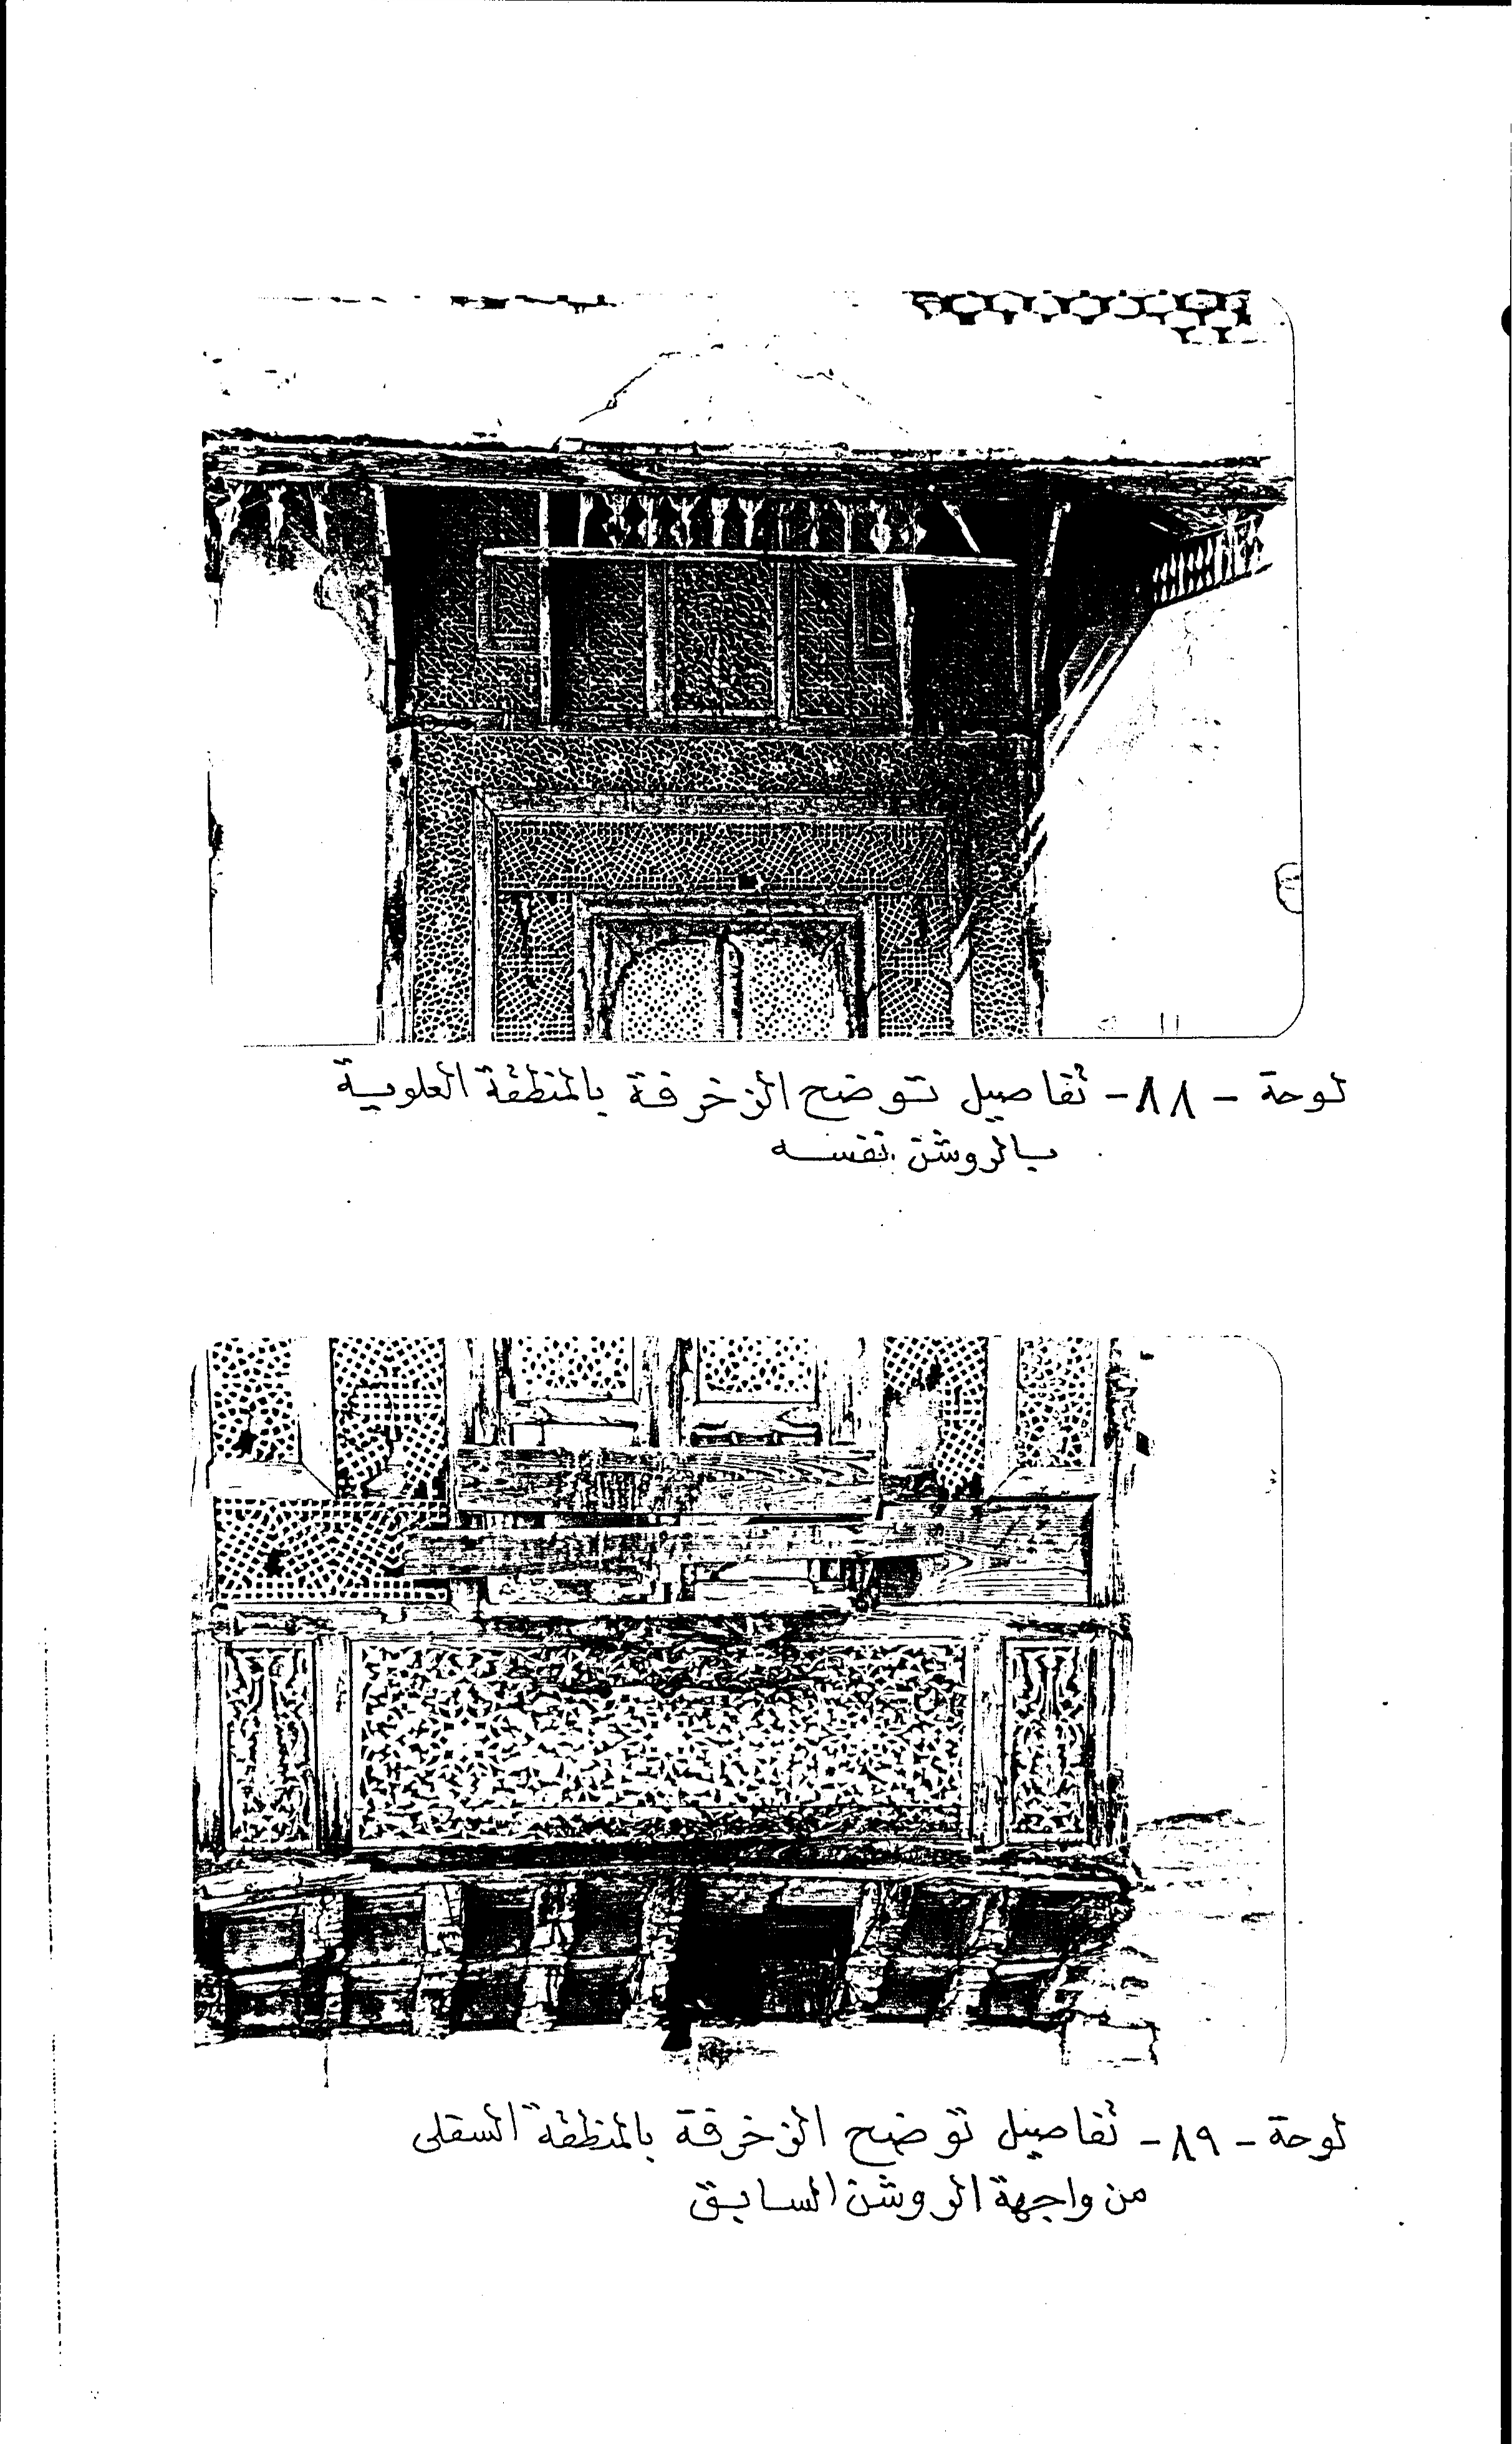 لوحة - ٨٨ - تفاصيل توضح الزخرفة بالمنطقة العلوية
بالروشن نفسه
لوحة - ٨٩ - تفاصيل توضح الزخرفة بالمنطقة السفلى
من واجهة الروشن السابق